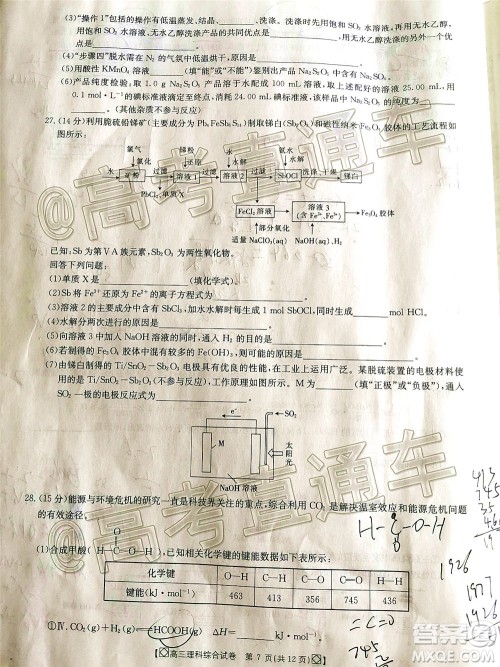 (3)“操作1”包括的操作有低温蒸发、结晶、______、洗涤。洗涤时先用饱和 SO₂ 水溶液,再用无水乙醇。
用饱和 SO₂ 水溶液、无水乙醇洗涤产品的共同优点是______,用无水乙醇洗涤的另外一个优
点是______。
(4)“步骤四”脱水需在 N₂ 的气氛中低温烘干,原因是______。
(5)用酸性 KMnO₄ 溶液______(填“能”或“不能”)鉴别出产品 Na₂S₂O₅ 中含有杂质
(6)产品纯度检验,取 1.0 g Na₂S₂O₅ 产品配成 100 mL 溶液,取上述配好的溶液 25.00 mL,用
0.1 mol·L⁻¹ 的碘标准液滴定至终点,消耗 24.00 mL 碘标准液,该样品中 Na₂S₂O₅ 的纯度为
______。(其他杂质不参与反应)
27.(14分)利用脆硫铅锑矿(主要成分为 Pb₄FeSb₆S₁₄)制取锑白(Sb₂O₃)和磁性纳米 Fe₃O₄ 胶体的工艺流程如
图所示:
氯气 锑粉 水
水 氯化 还原 水解
矿粉 过滤 溶液1 过滤 溶液2 过滤 SbOCl 洗涤、干燥 锑白
PbCl₂ 单质X
FeCl₂溶液 溶液3(含 Fe²⁺、Fe³⁺) Fe₃O₄ 胶体
部分氧化
适量 NaClO₃(aq) NaOH(aq)、H₂
已知:Sb 为第ⅤA族元素,Sb₂O₃ 为两性氧化物。
回答下列问题:
(1)单质 X 是______(填化学式)。
(2)Sb 将 Fe³⁺ 还原为 Fe²⁺ 的离子方程式为______
(3)溶液 2 的主要成分中含有 SbCl₃,加水水解时每生成 1 mol SbOCl,同时生成______mol HCl。
(4)水解分两次进行的原因为______。
(5)向溶液 3 中加入 NaOH 溶液的同时,通入 H₂ 的目的是______。
(6)若制得的 Fe₃O₄ 胶体中混有较多的 Fe(OH)₃,则可能的原因是______。
(7)由锑白制得的 Ti/SnO₂—Sb₂O₃ 电极具有优良的性能,在工业上运用广泛。某脱硫装置的电极材料使
用的是 Ti/SnO₂—Sb₂O₃(不参与反应),工作原理如图所示。M 为______(填“正极”或“负极”),通入
SO₂ 一极的电极反应式为______。
e⁻ SO₂
M 太阳光
NaOH溶液
28.(15分)能源与环境危机的研究一直是科技界关注的重点,综合利用 CO₂ 是解决温室效应和能源危机问题
的有效途径。
(1)合成甲酸(H—C(=O)—O—H),已知相关化学键的键能数据如下表所示:
化学键 O—H C—H C—O C=O H—H
键能(kJ·mol⁻¹) 463 413 356 745 436
①Ⅳ. CO₂(g)+H₂(g)⇌HCOOH(g) ΔH=______kJ·mol⁻¹。
高三理科综合试卷 第 7 页(共 12 页)
@高考直通车
高考直通车
H-C-O-H
O
413
745
1926
1926
=C=O
745
答案圈